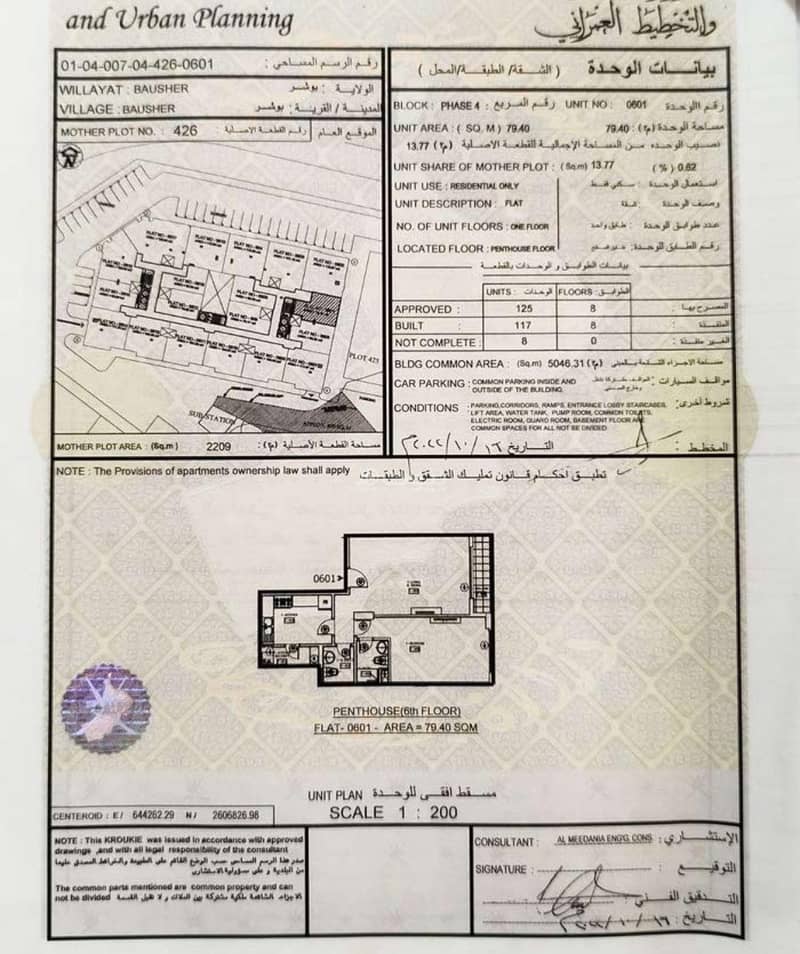 and Urban Planning
والتخطيط العمراني
01-04-007-04-426-0601 رقم الرسم المساحي :
WILLAYAT : BAUSHER الولاية : بوشر
VILLAGE : BAUSHER المدينة / القرية : بوشر
MOTHER PLOT NO. : 426 رقم القطعة الاصلية : الموقع العام
N
PLOT 425
SUB STATION
MOTHER PLOT AREA : (Sq.m) 2209 مساحة القطعة الأصلية (م٢) :
بيانات الوحدة ( الشقة/ الطبقة/المحل )
BLOCK : PHASE 4 رقم المربع : UNIT NO : 0601 رقم الوحدة :
UNIT AREA : ( SQ. M ) 79.40 79.40 مساحة الوحدة (م٢) :
نصيب الوحده من المساحة الإجمالية للقطعة الاصلية (م٢) 13.77
UNIT SHARE OF MOTHER PLOT : (Sq.m) 13.77 (%) 0.62
UNIT USE : RESIDENTIAL ONLY استعمال الوحدة : سكني فقط
UNIT DESCRIPTION : FLAT وصف الوحدة : شقة
NO. OF UNIT FLOORS : ONE FLOOR عدد طوابق الوحدة : طابق واحد
LOCATED FLOOR : PENTHOUSE FLOOR رقم الطابق للوحدة :
بيانات الطوابق و الوحدات بالقطعة
UNITS : الوحدات FLOORS : الطوابق
APPROVED : 125 8 المصرح بها :
BUILT : 117 8 المنفذة :
NOT COMPLETE : 8 0 الغير منفذة :
BLDG COMMON AREA : (Sq.m) 5046.31 (م٢) مساحة الاجزاء الشائعة بالمبنى
CAR PARKING : COMMON PARKING INSIDE AND OUTSIDE OF THE BUILDING. مواقف السيارات :
CONDITIONS : PARKING,CORRIDORS, RAMPS, ENTRANCE LOBBY STAIRCASES, شروط أخرى:
LIFT AREA, WATER TANK, PUMP ROOM, COMMON TOILETS,
ELECTRIC ROOM, GUARD ROOM, BASEMENT FLOOR ARE
COMMON SPACES FOR ALL NOT BE DIVIDED
المخطط : التاريخ ١٦ / ١٠ / ٢٠٢٢م
NOTE : The Provisions of apartments ownership law shall apply تطبق أحكام قانون تمليك الشقق و الطبقات
0601
PENTHOUSE(6th FLOOR)
FLAT- 0601 - AREA = 79.40 SQM
UNIT PLAN مسقط افقي للوحدة
SCALE 1 : 200
CENTEROID : E / 644262.29 N / 2606826.98
NOTE : This KROUKIE was issued in accordance with approved
drawings ,and with all legal responsibility of the consultant
صدر هذا الرسم المساحي حسب الوضع القائم على الطبيعة والخرائط المصدق عليها
من البلدية و على مسؤولية الاستشاري
The common parts mentioned are common property and can
not be divided الاجزاء الشائعة ملكية مشتركة بين الملاك و لا تقبل القسمة
CONSULTANT : AL MEEDANIA ENG'G. CONS الإستشاري :
SIGNATURE : التوقيع :
التدقيق الفني :
التاريخ : ١٦ / ١٠ / ٢٠٢٢م